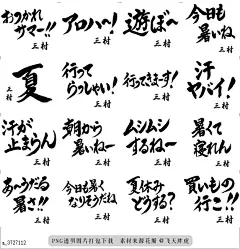 おつかれ
サマー!!
三村
アロハ〜!
三村
遊ぼ〜
三村
今日も
暑いね
三村
夏
三村
行って
らっしゃい!
三村
行ってきまーす!
三村
汗
ヤバイ!
三村
汗が
止まらん
三村
朝から
暑いねー
三村
ムシムシ
するね〜
三村
暑くて
寝れん
三村
あ〜うだる
暑さ!!
三村
今日も暑く
なりそうだね
三村
夏休み
どうする?
三村
買いもの
行こ!!
三村
PNG透明图片打包下载 素材来源花瓣@飞天胖虎